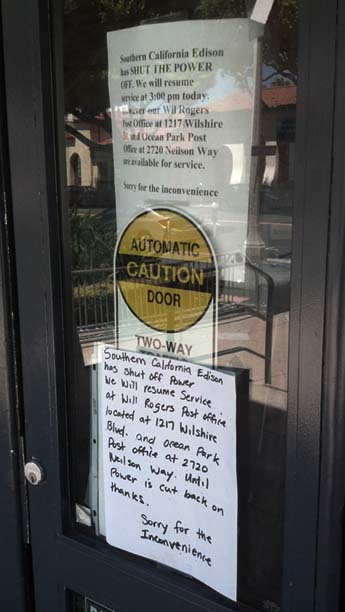 Southern California Edison
has SHUT THE POWER
OFF. We will resume
service at 3:00 pm today.
our Wil Rogers
Post Office at 1217 Wilshire
and Ocean Park Post
Office at 2720 Neilson Way
are available for service.
Sorry for the inconvenience
AUTOMATIC
CAUTION
DOOR
TWO-WAY
Southern California Edison
has shut off Power
We Will resume Service
at Will Rogers Post office
located at 1217 Wilshire
Blvd. and Ocean Park
Post office at 2720
Neilson Way. Until
Power is cut back on
thanks.
Sorry for the
Inconvenience